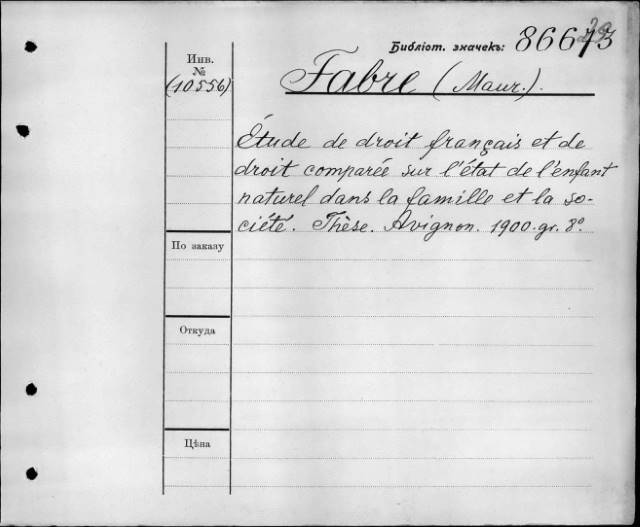 Библіот. значекъ: 86673
29
Инв.
№
(10556)
Fabre (Maur.).
Étude de droit français et de
droit comparée sur l'état de l'enfant
naturel dans la famille et la so-
ciété. Thèse. Avignon. 1900. gr. 8º.
По заказу
Откуда
Цѣна